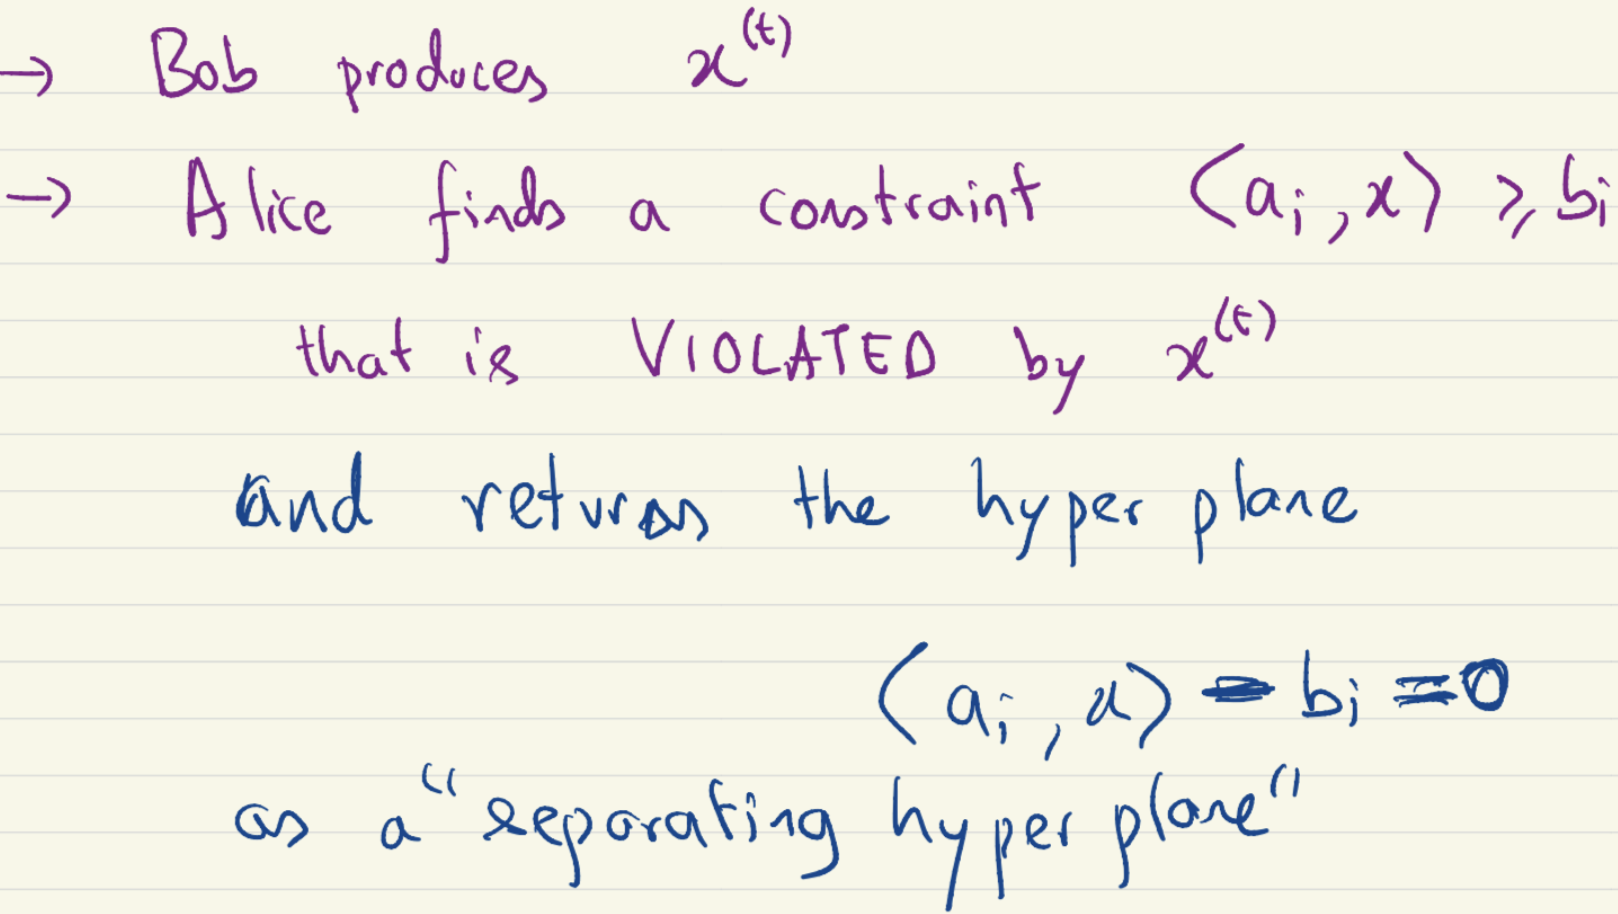 → Bob produces x^(t)
→ Alice finds a constraint ⟨a_i, x⟩ ≥ b_i
that is VIOLATED by x^(t)
and returns the hyperplane
⟨a_i, x⟩ - b_i = 0
as a "separating hyperplane"